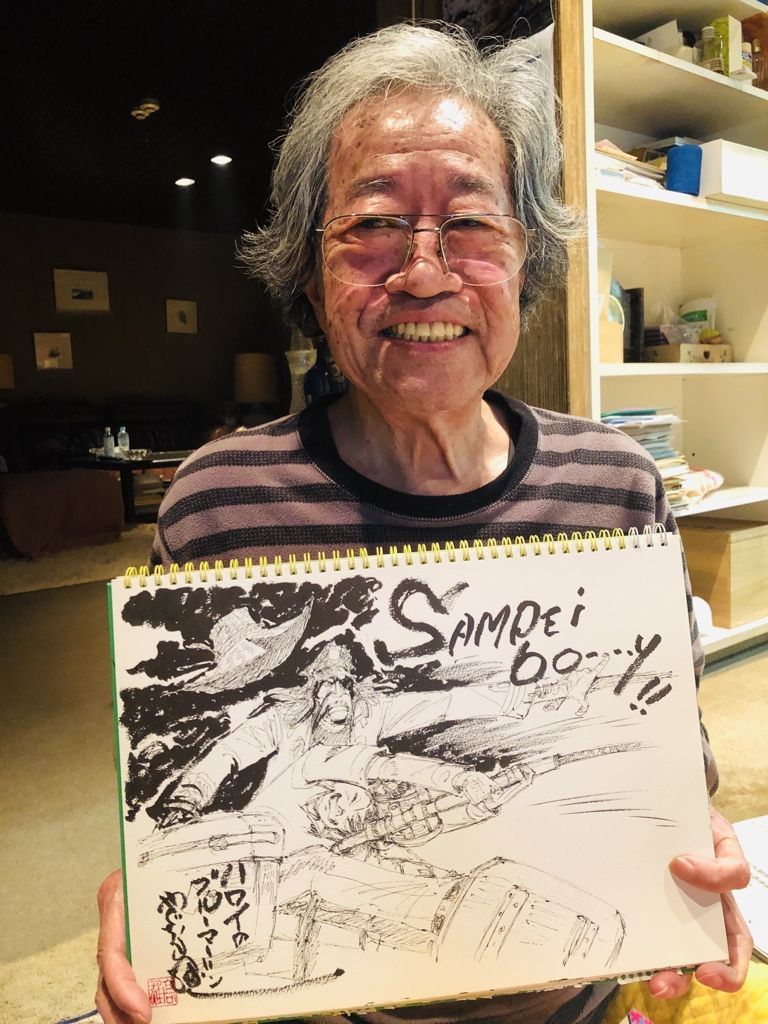 SAMPEi
bo····y!!
ハワイの
ブルーマーリン